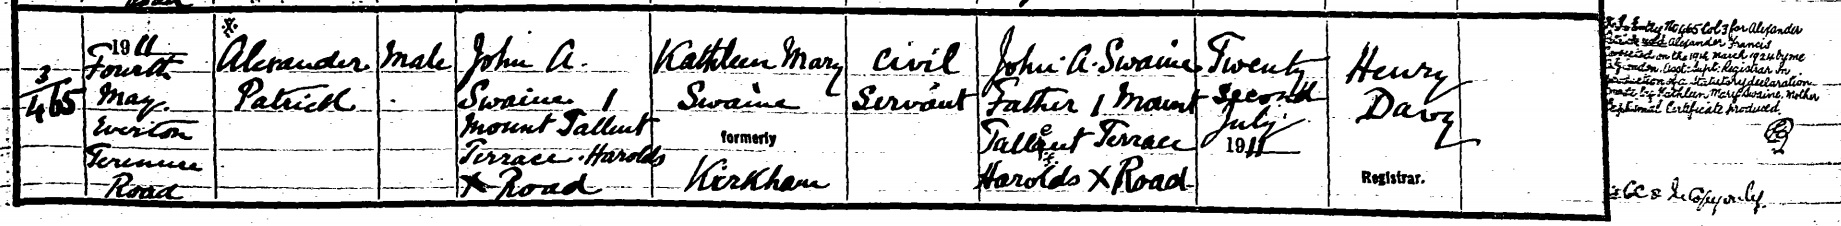 3
465
1911
Fourth
May
Everton
Terenure
Road
Alexander
Patrick
Male
John A.
Swaine 1
Mount Tallent
Terrace Harolds
X Road
Kathleen Mary
Swaine
formerly
Kirkham
Civil
Servant
John A. Swaine
Father 1 Mount
Tallent Terrace
Harolds X Road
Twenty
second
July
1911
Henry
Davy
Registrar.
Entry No 465 Col 3 for Alexander
Alexander Francis
on the 19th March 1924 by me
Registrar on
of a Statutory declaration
made by Kathleen Mary Swaine, Mother
Baptismal Certificate produced.